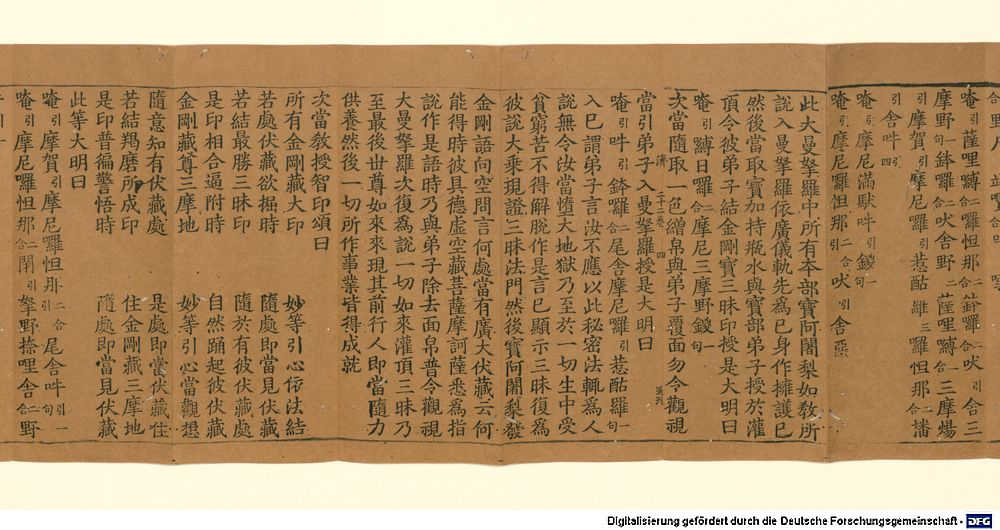 唵引薩哩嚩二合囉怛那二合鉢囉二合吠引舍三
摩野句一鉢囉二合吠舍野二薩哩嚩二合三摩煬
引摩賀引摩尼囉引惹酤維三囉怛那二合播
引舍吽引四
唵引摩尼滿馱吽引鑁一
唵引摩尼囉怛那二合吠引舍惡
此大曼拏羅中所有本部寶阿闍梨如教所
說入曼拏羅依廣儀軌先為已身作擁護已
然後當取寶加持瓶水與寶部弟子授於灌
頂令彼弟子結金剛寶三昧印授是大明曰
唵引嚩日囉二合摩尼三摩野鑁一句
次當隨取一色繒帛與弟子覆面勿令觀視
二十二卷 四
當引弟子入曼拏羅授是大明曰
唵引吽引鉢囉二合尾舍摩尼囉引惹酤羅一句
入已謂弟子言汝不應以此秘密法輒為人
說無令汝當墮大地獄乃至於一切生中受
貧窮苦不得解脫作是言已顯示三昧復為
彼說大乘現證三昧法門然後寶阿闍梨發
金剛語向空問言何處當有廣大伏藏云何
能得時彼具德虛空藏菩薩摩訶薩悉為指
說作是語時乃與弟子除去面帛普令觀視
大曼拏羅次復為說一切如來灌頂三昧乃
至最後世尊如來來現其前行人即當隨力
供養然後一切所作事業皆得成就
次當教授智印頌曰
所有金剛藏大印 妙等引心依法結
若處伏藏欲掘時 隨處即當見伏藏
若結最勝三昧印 隨於有彼伏藏處
是印相合逼附時 自然踊起彼伏藏
金剛藏尊三摩地 妙等引心當觀想
隨意知有伏藏處 是處即當伏藏住
若結羯磨所成印 住金剛藏三摩地
是印普徧警悟時 隨處即當見伏藏
此等大明曰
唵引摩賀引摩尼囉怛那二合尾舍吽引一句
唵引摩尼囉怛那二合閉引拏野捺哩舍二合野
Digitalisierung gefördert durch die Deutsche Forschungsgemeinschaft - DFG